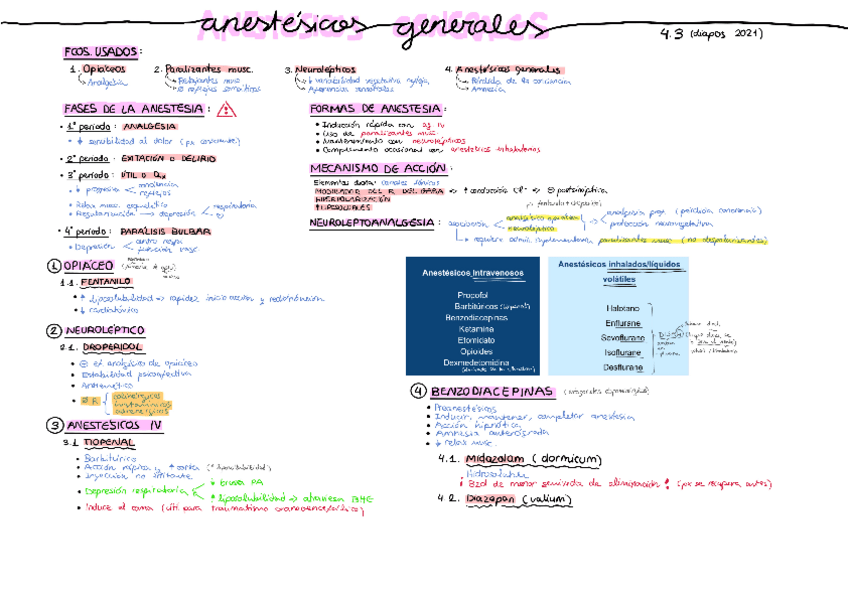 anestésicos generales
4.3 (diapos 2021)
FCOS. USADOS:
1. Opiáceos
Analgesia
2. Paralizantes musc.
Relajantes musc
⊖ reflejos somáticos
3. Neurolépticos
4. Anestésicos generales
Pérdida de la conciencia
Amnesia
FASES DE LA ANESTESIA:
• 1º periodo: ANALGESIA
• ↓ sensibilidad al dolor (px consciente)
• 2º periodo: EXITACIÓN o DELIRIO
• 3º periodo: ÚTIL o Qx
• ↓ progresiva
conciencia
reflejos
• Relax musc. esquelético
• Regularización → depresión
respiratoria
• 4º periodo: PARÁLISIS BULBAR
• Depresión
centro resp
función vasc.
FORMAS DE ANESTESIA:
• Inducción rápida con ag IV
• Uso de paralizantes musc.
• Mantenimiento con neurolépticos
• Complemento ocasional con anestésicos inhalatorios
MECANISMO DE ACCIÓN:
Elementos diana: canales iónicos
MODULACIÓN DEL R DEL GABA ↔ ↑ conducción Cl⁻ ↔ ⊖ postsináptica
HIPERPOLARIZACIÓN
NEUROLEPTOANALGESIA:
asociación
analgésico opiáceo
neuroléptico
analgesia prof. (pérdida conciencia)
protección neurovegetativa
requiere admin. suplementaria paralizantes musc (no despolarizantes)
1 OPIÁCEO
1.1. FENTANILO
• ↑ liposolubilidad ⇒ rapidez inicio acción y redistribución
• ↓ cardiotóxico
2 NEUROLÉPTICO
2.1. DROPERIDOL
• ⊕ ef. analgésico de opiáceos
• Estabilidad psicoafectiva
• Antiemético
• ⊘ R
colinérgicos
histamínicos
adrenérgicos
3 ANESTÉSICOS IV
3.1 TIOPENAL
• Barbitúrico
• Acción rápida y ↑ corta (↑ liposolubilidad)
• Inyección no irritante
• Depresión respiratoria
↓ brusca PA
↑ liposolubilidad ⇒ atraviesan BHE
• Induce el coma (útil para traumatismo craneoencefálico)
Anestésicos Intravenosos
Propofol
Barbitúricos (tiopental)
Benzodiacepinas
Ketamina
Etomidato
Opioides
Dexmedetomidina
Anestésicos inhalados/líquidos
volátiles
Halotano
Enflurane
Sevoflurane
Isoflurane
Desflurane
4 BENZODIACEPINAS
• Preanestésicos
• Inducir, mantener, completar anestesia
• Acción hipnótica
• Amnesia anterógrada
• ↓ relax musc.
4.1. Midazolam (dormicum)
Hidrosoluble
¡ Bzd de menor semivida de eliminación ! (px se recupera antes)
4.2. Diazepan (valium)